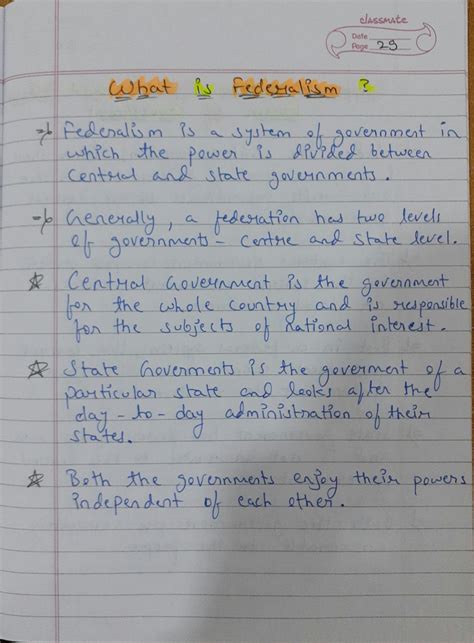 classmate
Date
Page 29
What is Federalism ?
Federalism is a system of government in
which the power is divided between
central and state governments.
Generally, a federation has two levels
of governments - Centre and State level.
Central Government is the government
for the whole country and is responsible
for the subjects of National interest.
State Governments is the goverment of a
particular state and looks after the
day-to-day administration of their
states.
Both the governments enjoy their powers
independent of each other.